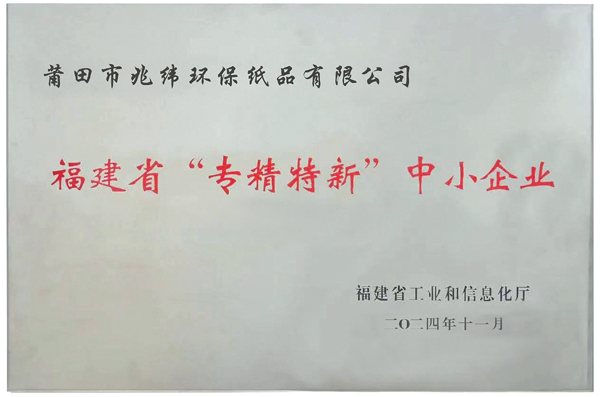 莆田市兆纬环保纸品有限公司
福建省“专精特新”中小企业
福建省工业和信息化厅
二〇二四年十一月